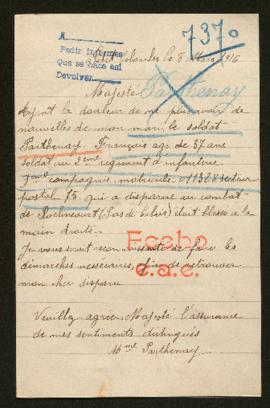 A
Pedir informes
Que se hace así
Devolver
7370
le 8 Mars 1916
Majesté
Parthenay
Ayant la douleur de ne plus avoir de
nouvelles de mon mari le soldat
Parthenay Français age de 37 ans
soldat au 2eme regiment d'infanterie
7eme compagnie, matricule 011368 secteur
postal 75 qui a disparu au combat
de Roclincourt (Pas de Calais) étant blessé a la
main droite.
Je vous serait reconnaissante de faire les
démarches nécessaires, afin de retrouver
mon cher disparu
Fecho
c.a.c.
Veuillez agréer, Majesté l'assurance
de mes sentiments distingués
Mme Parthenay